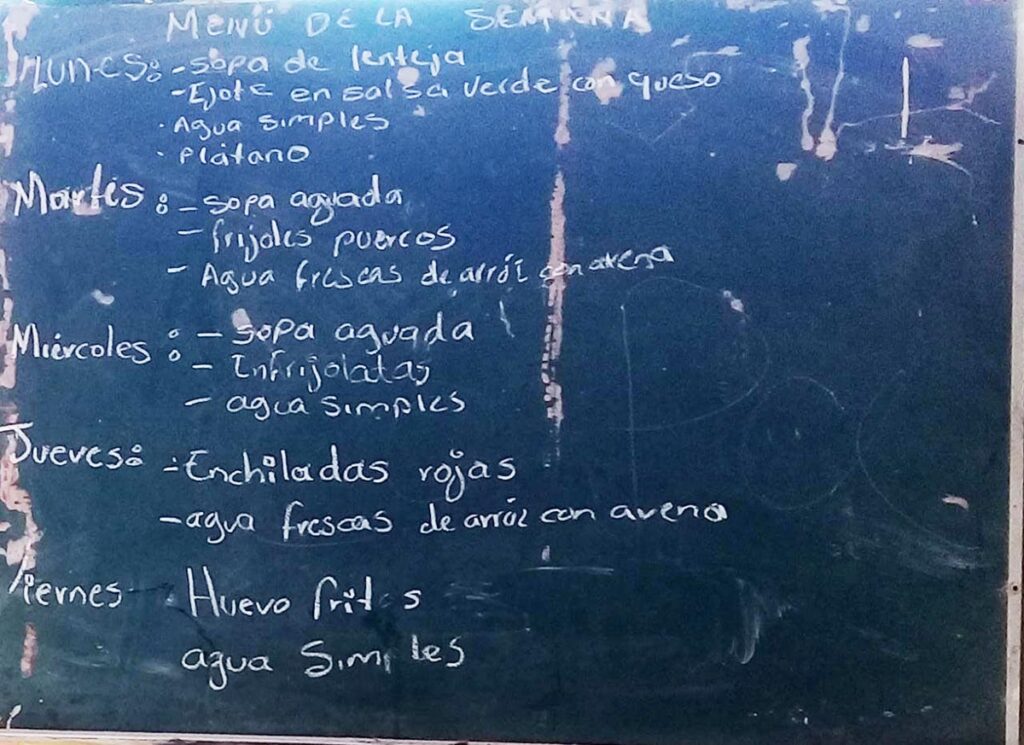 MENÚ DE LA SEMANA
LUNES: - sopa de lenteja
- Ejote en salsa verde con queso
· Agua simples
· Plátano
Martes: - sopa aguada
- frijoles puercos
- Agua frescas de arróz con avena
Miércoles: - sopa aguada
- Enfrijolatas
- agua simples
Jueves: - Enchiladas rojas
- agua frescas de arróz con avena
Viernes - Huevo fritos
agua Simples